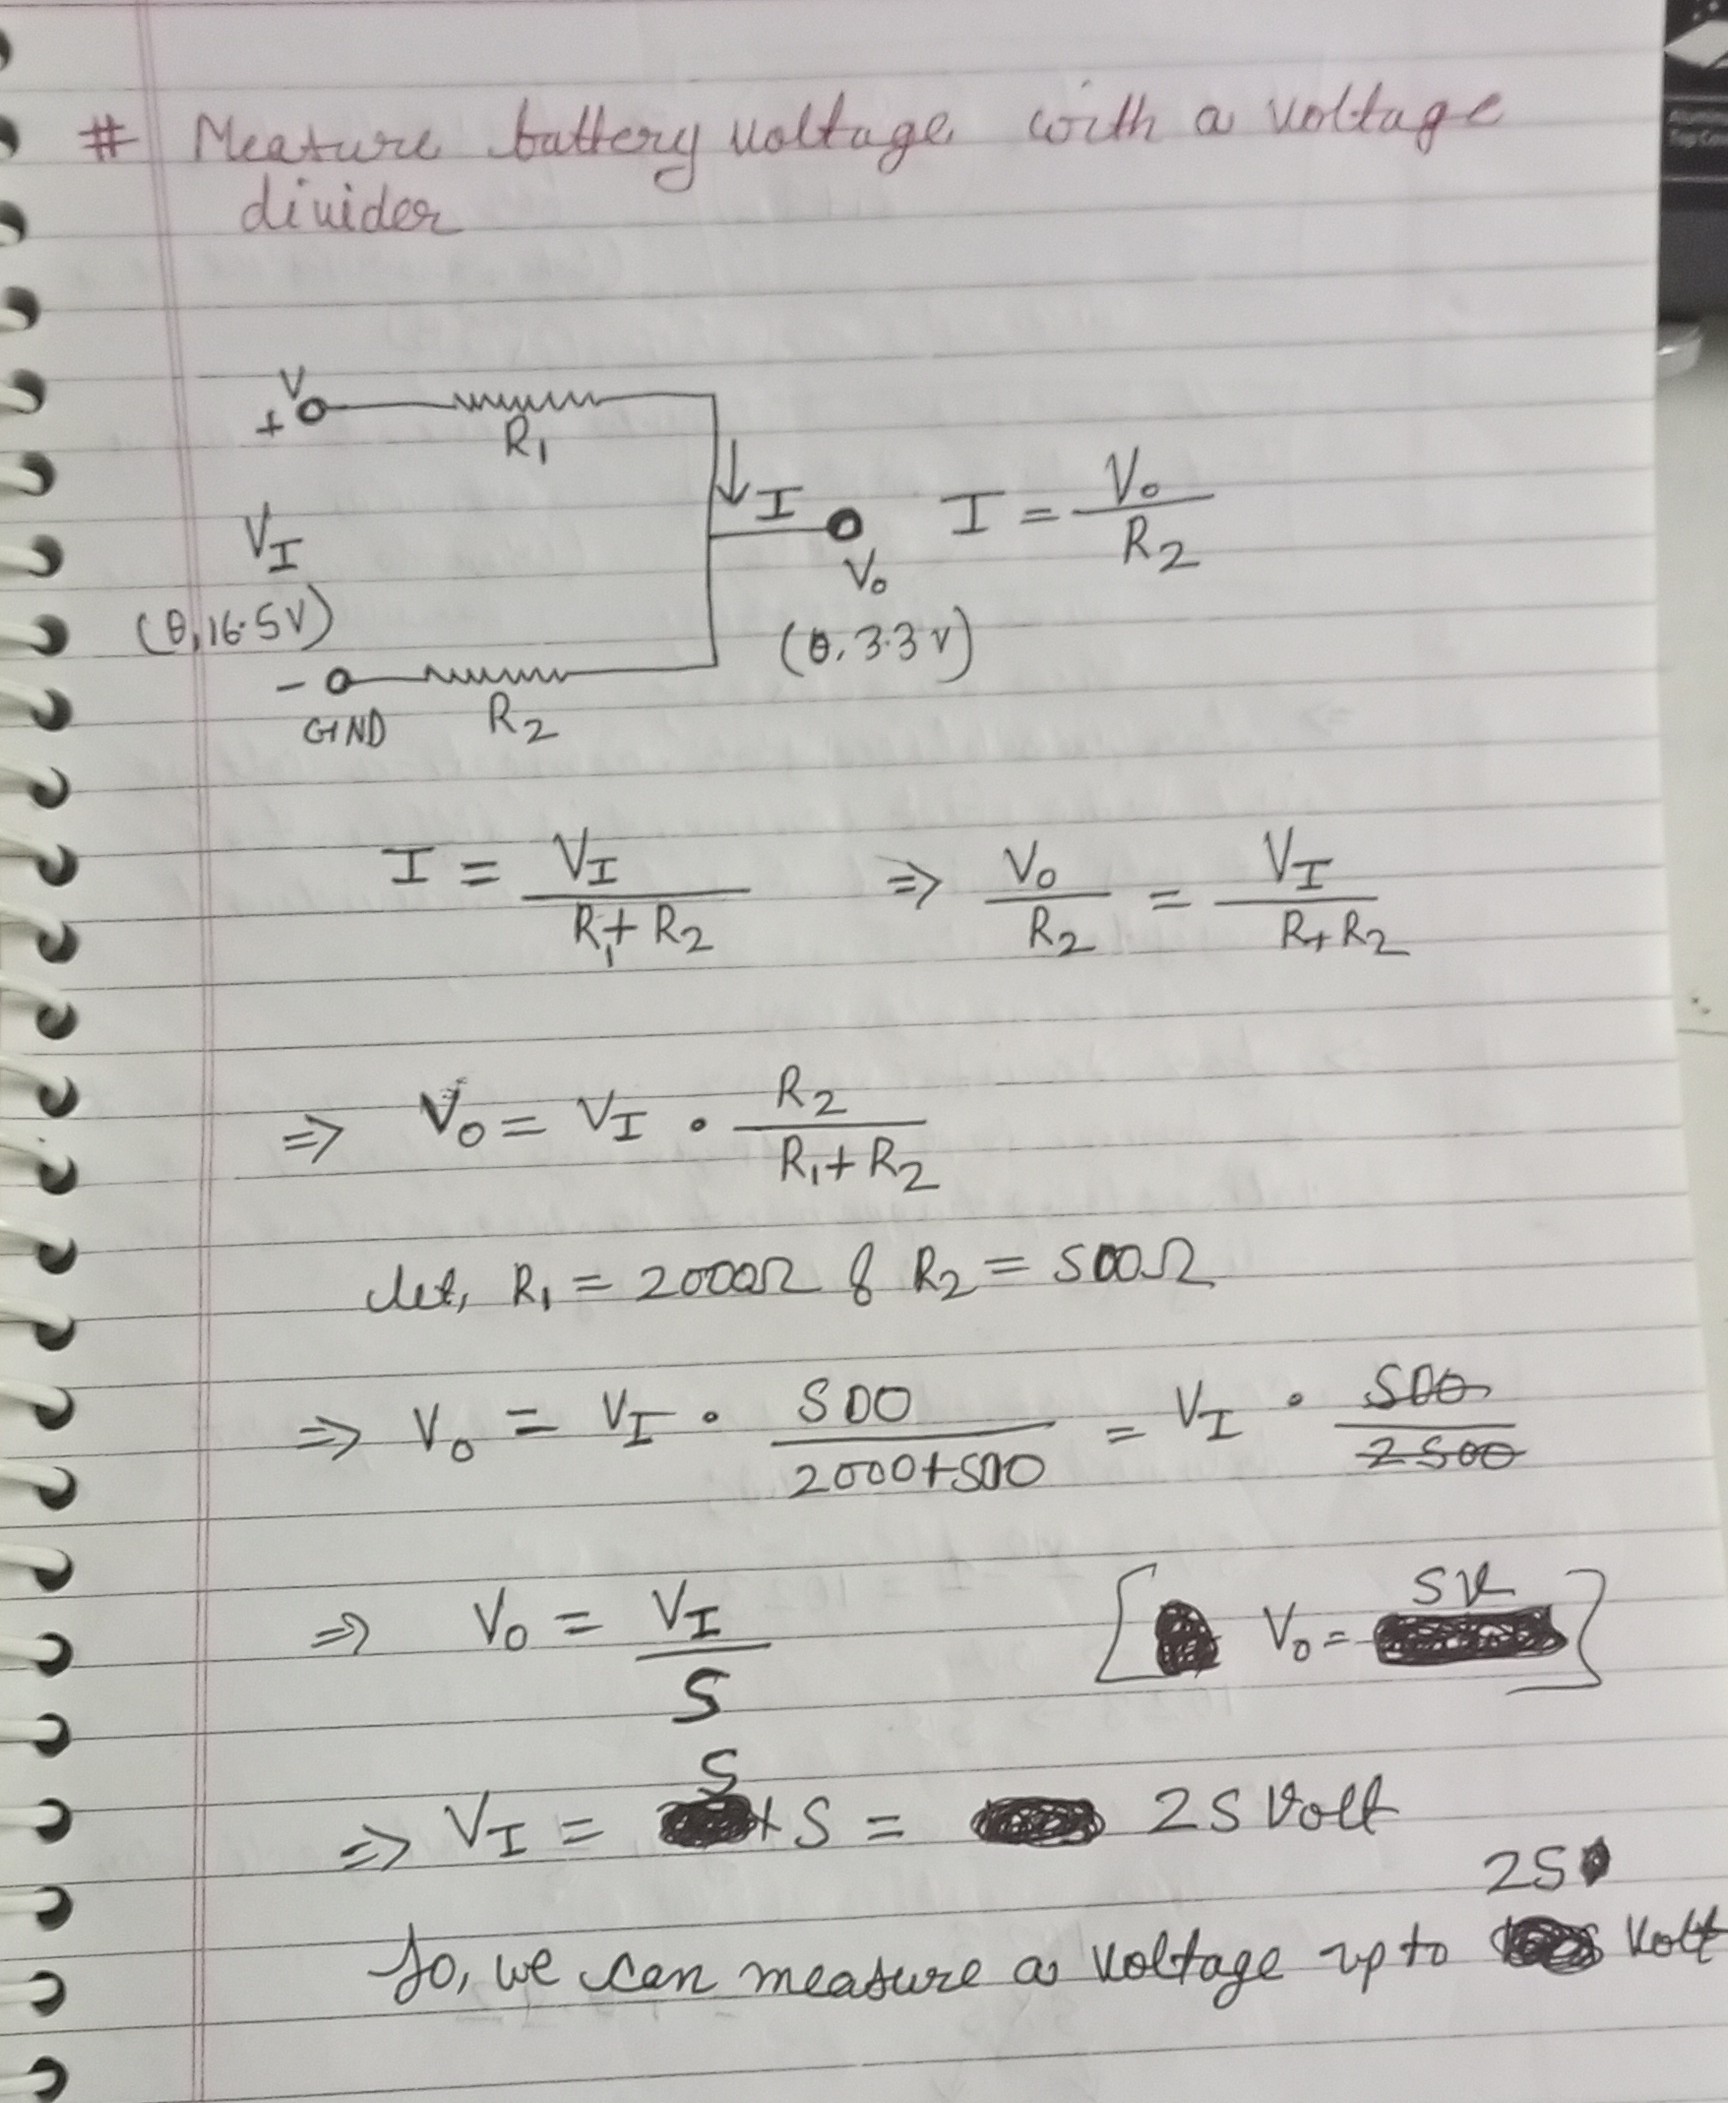 # Measure battery voltage with a voltage
divider
V
+
R₁
I
I = V₀/R₂
V_I
V₀
(0, 16.5V)
(0, 3.3V)
-
GND
R₂
I = V_I/(R₁+R₂) ⇒ V₀/R₂ = V_I/(R+R₂)
⇒ V₀ = V_I · R₂/(R₁+R₂)
Let, R₁ = 2000Ω & R₂ = 500Ω
⇒ V₀ = V_I · 500/(2000+500) = V_I · 500/2500
⇒ V₀ = V_I/5 [V₀ = 5V]
⇒ V_I = 5 × 5 = 25 Volt
So, we can measure a voltage upto 25 Volt